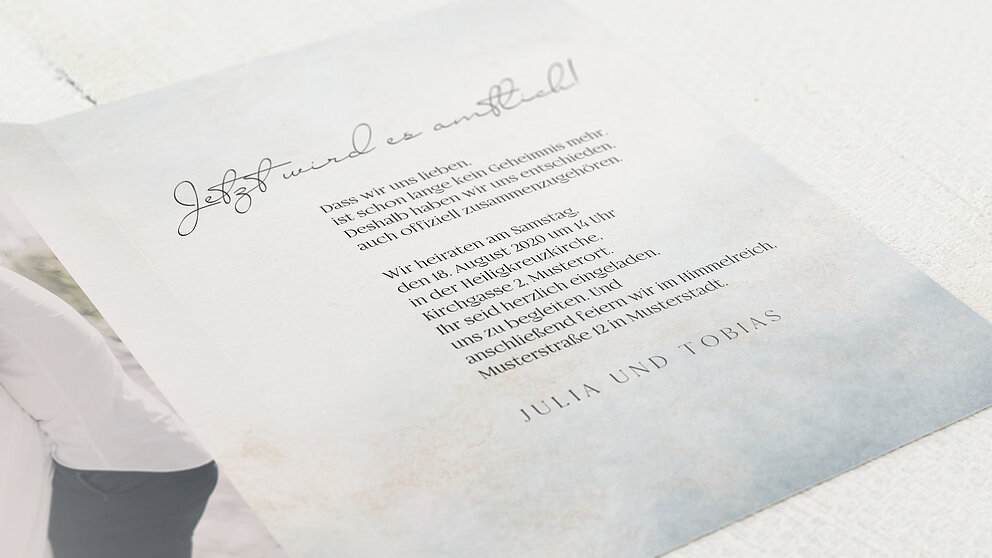 Jetzt wird es amtlich!
Dass wir uns lieben,
ist schon lange kein Geheimnis mehr.
Deshalb haben wir uns entschieden,
auch offiziell zusammenzugehören.
Wir heiraten am Samstag,
den 18. August 2020 um 14 Uhr
in der Heiligkreuzkirche,
Kirchgasse 2, Musterort.
Ihr seid herzlich eingeladen,
uns zu begleiten. Und
anschließend feiern wir im Himmelreich,
Musterstraße 12 in Musterstadt.
JULIA UND TOBIAS